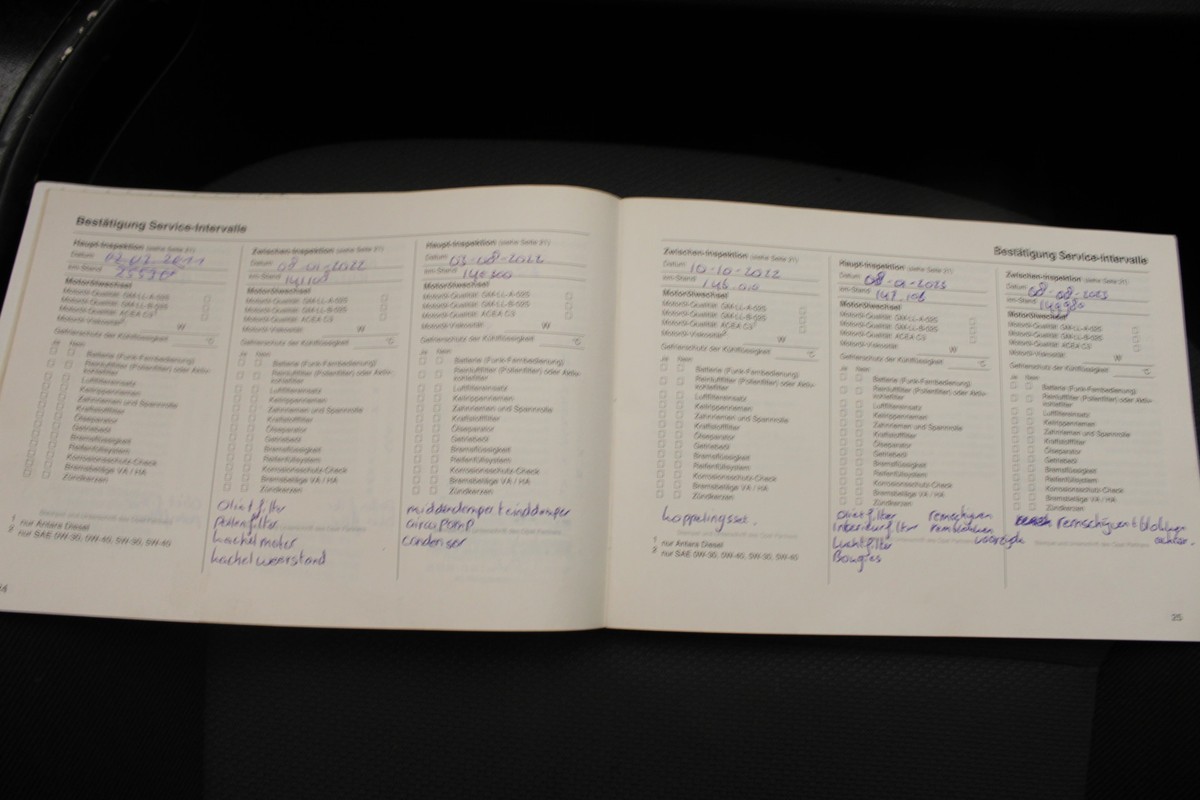 Bestätigung Service-Intervalle
Haupt-Inspektion (siehe Seite 21)
Datum
km-Stand
Motorölwechsel
Motoröl-Qualität: GM-LL-A-025
Motoröl-Qualität: GM-LL-B-025
Motoröl-Qualität: ACEA C3¹
Motoröl-Viskosität² W
Gefrierschutz der Kühlflüssigkeit °C
Ja Nein
Batterie (Funk-Fernbedienung)
Reinluftfilter (Pollenfilter) oder Aktiv-
kohlefilter
Luftfiltereinsatz
Keilrippenriemen
Zahnriemen und Spannrolle
Kraftstofffilter
Ölseparator
Getriebeöl
Bremsflüssigkeit
Reifenfüllsystem
Korrosionsschutz-Check
Bremsbeläge VA / HA
Zündkerzen
1 nur Antara Diesel
2 nur SAE 0W-30, 0W-40, 5W-30, 5W-40
Zwischen-Inspektion (siehe Seite 21)
Datum 08-01-2022
km-Stand
Motorölwechsel
Motoröl-Qualität: GM-LL-A-025
Motoröl-Qualität: GM-LL-B-025
Motoröl-Qualität: ACEA C3¹
Motoröl-Viskosität² W
Gefrierschutz der Kühlflüssigkeit °C
Ja Nein
Batterie (Funk-Fernbedienung)
Reinluftfilter (Pollenfilter) oder Aktiv-
kohlefilter
Luftfiltereinsatz
Keilrippenriemen
Zahnriemen und Spannrolle
Kraftstofffilter
Ölseparator
Getriebeöl
Bremsflüssigkeit
Reifenfüllsystem
Korrosionsschutz-Check
Bremsbeläge VA / HA
Zündkerzen
kachelmotor
kachelweerstand
Haupt-Inspektion (siehe Seite 21)
Datum 03-08-2022
km-Stand 140300
Motorölwechsel
Motoröl-Qualität: GM-LL-A-025
Motoröl-Qualität: GM-LL-B-025
Motoröl-Qualität: ACEA C3¹
Motoröl-Viskosität² W
Gefrierschutz der Kühlflüssigkeit °C
Ja Nein
Batterie (Funk-Fernbedienung)
Reinluftfilter (Pollenfilter) oder Aktiv-
kohlefilter
Luftfiltereinsatz
Keilrippenriemen
Zahnriemen und Spannrolle
Kraftstofffilter
Ölseparator
Getriebeöl
Bremsflüssigkeit
Reifenfüllsystem
Korrosionsschutz-Check
Bremsbeläge VA / HA
Zündkerzen
middendemper + einddemper
aircopomp
condenser
Bestätigung Service-Intervalle
Zwischen-Inspektion (siehe Seite 21)
Datum 10-10-2022
km-Stand
Motorölwechsel
Motoröl-Qualität: GM-LL-A-025
Motoröl-Qualität: GM-LL-B-025
Motoröl-Qualität: ACEA C3¹
Motoröl-Viskosität² W
Gefrierschutz der Kühlflüssigkeit °C
Ja Nein
Batterie (Funk-Fernbedienung)
Reinluftfilter (Pollenfilter) oder Aktiv-
kohlefilter
Luftfiltereinsatz
Keilrippenriemen
Zahnriemen und Spannrolle
Kraftstofffilter
Ölseparator
Getriebeöl
Bremsflüssigkeit
Reifenfüllsystem
Korrosionsschutz-Check
Bremsbeläge VA / HA
Zündkerzen
koppelingsset.
1 nur Antara Diesel
2 nur SAE 0W-30, 0W-40, 5W-30, 5W-40
Haupt-Inspektion (siehe Seite 21)
Datum 08-01-2023
km-Stand 147.106
Motorölwechsel
Motoröl-Qualität: GM-LL-A-025
Motoröl-Qualität: GM-LL-B-025
Motoröl-Qualität: ACEA C3¹
Motoröl-Viskosität² W
Gefrierschutz der Kühlflüssigkeit °C
Ja Nein
Batterie (Funk-Fernbedienung)
Reinluftfilter (Pollenfilter) oder Aktiv-
kohlefilter
Luftfiltereinsatz
Keilrippenriemen
Zahnriemen und Spannrolle
Kraftstofffilter
Ölseparator
Getriebeöl
Bremsflüssigkeit
Reifenfüllsystem
Korrosionsschutz-Check
Bremsbeläge VA / HA
Zündkerzen
remschijven
remblokken
voorzijde
Luchtfilter
Bougies
Zwischen-Inspektion (siehe Seite 21)
Datum 08-08-2023
km-Stand 149980
Motorölwechsel
Motoröl-Qualität: GM-LL-A-025
Motoröl-Qualität: GM-LL-B-025
Motoröl-Qualität: ACEA C3¹
Motoröl-Viskosität² W
Gefrierschutz der Kühlflüssigkeit °C
Ja Nein
Batterie (Funk-Fernbedienung)
Reinluftfilter (Pollenfilter) oder Aktiv-
kohlefilter
Luftfiltereinsatz
Keilrippenriemen
Zahnriemen und Spannrolle
Kraftstofffilter
Ölseparator
Getriebeöl
Bremsflüssigkeit
Reifenfüllsystem
Korrosionsschutz-Check
Bremsbeläge VA / HA
Zündkerzen
remschijven + blokken
achter.
25